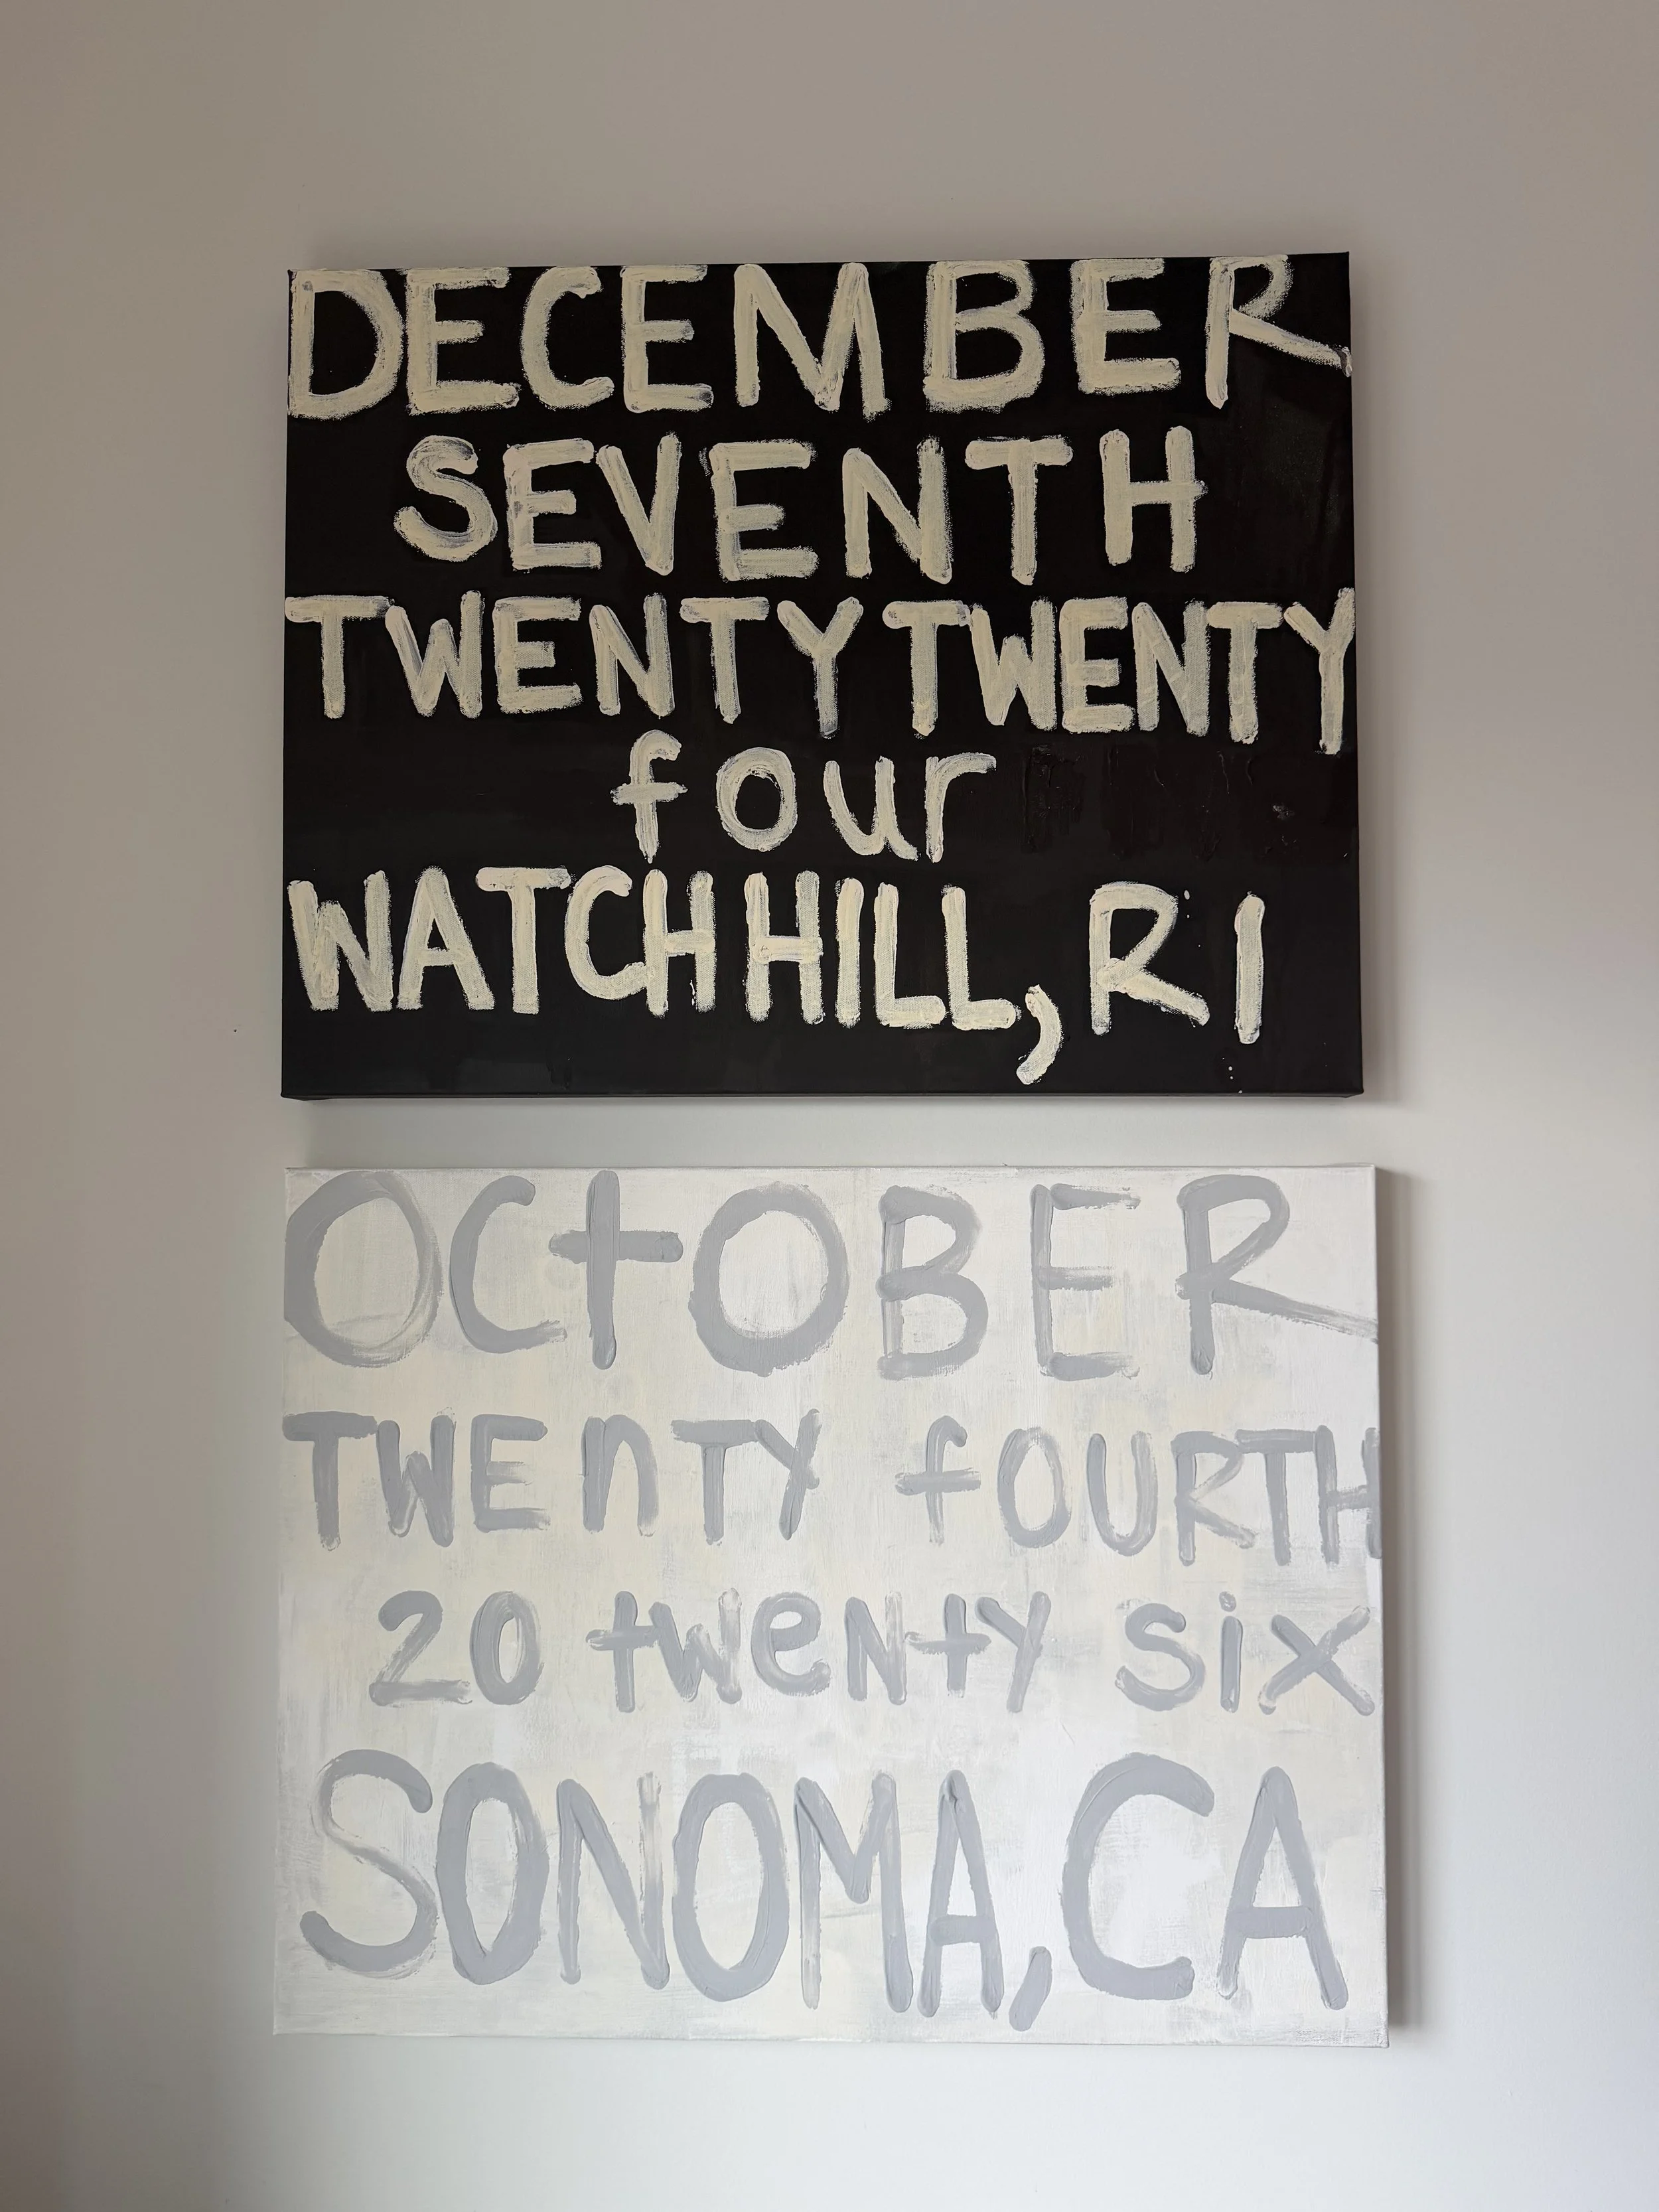 DECEMBER
SEVENTH
TWENTY TWENTY
four
WATCH HILL, RI
OCtOBER
TWEnTY fOURTH
20 tweNty six
SONOMA, CA